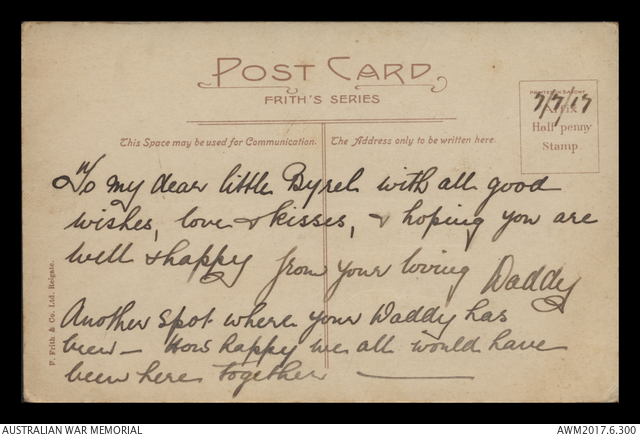 POST CARD
FRITH'S SERIES
PRINTED IN SAXONY
7/7/17
Affix
Half penny
Stamp
This Space may be used for Communication.
The Address only to be written here.
To my dear little Byrel with all good
wishes, love & kisses, & hoping you are
well & happy from your loving Daddy
Another spot where your Daddy has
been — How happy we all would have
been here together
F. Frith & Co. Ltd. Reigate.
AUSTRALIAN WAR MEMORIAL
AWM2017.6.300